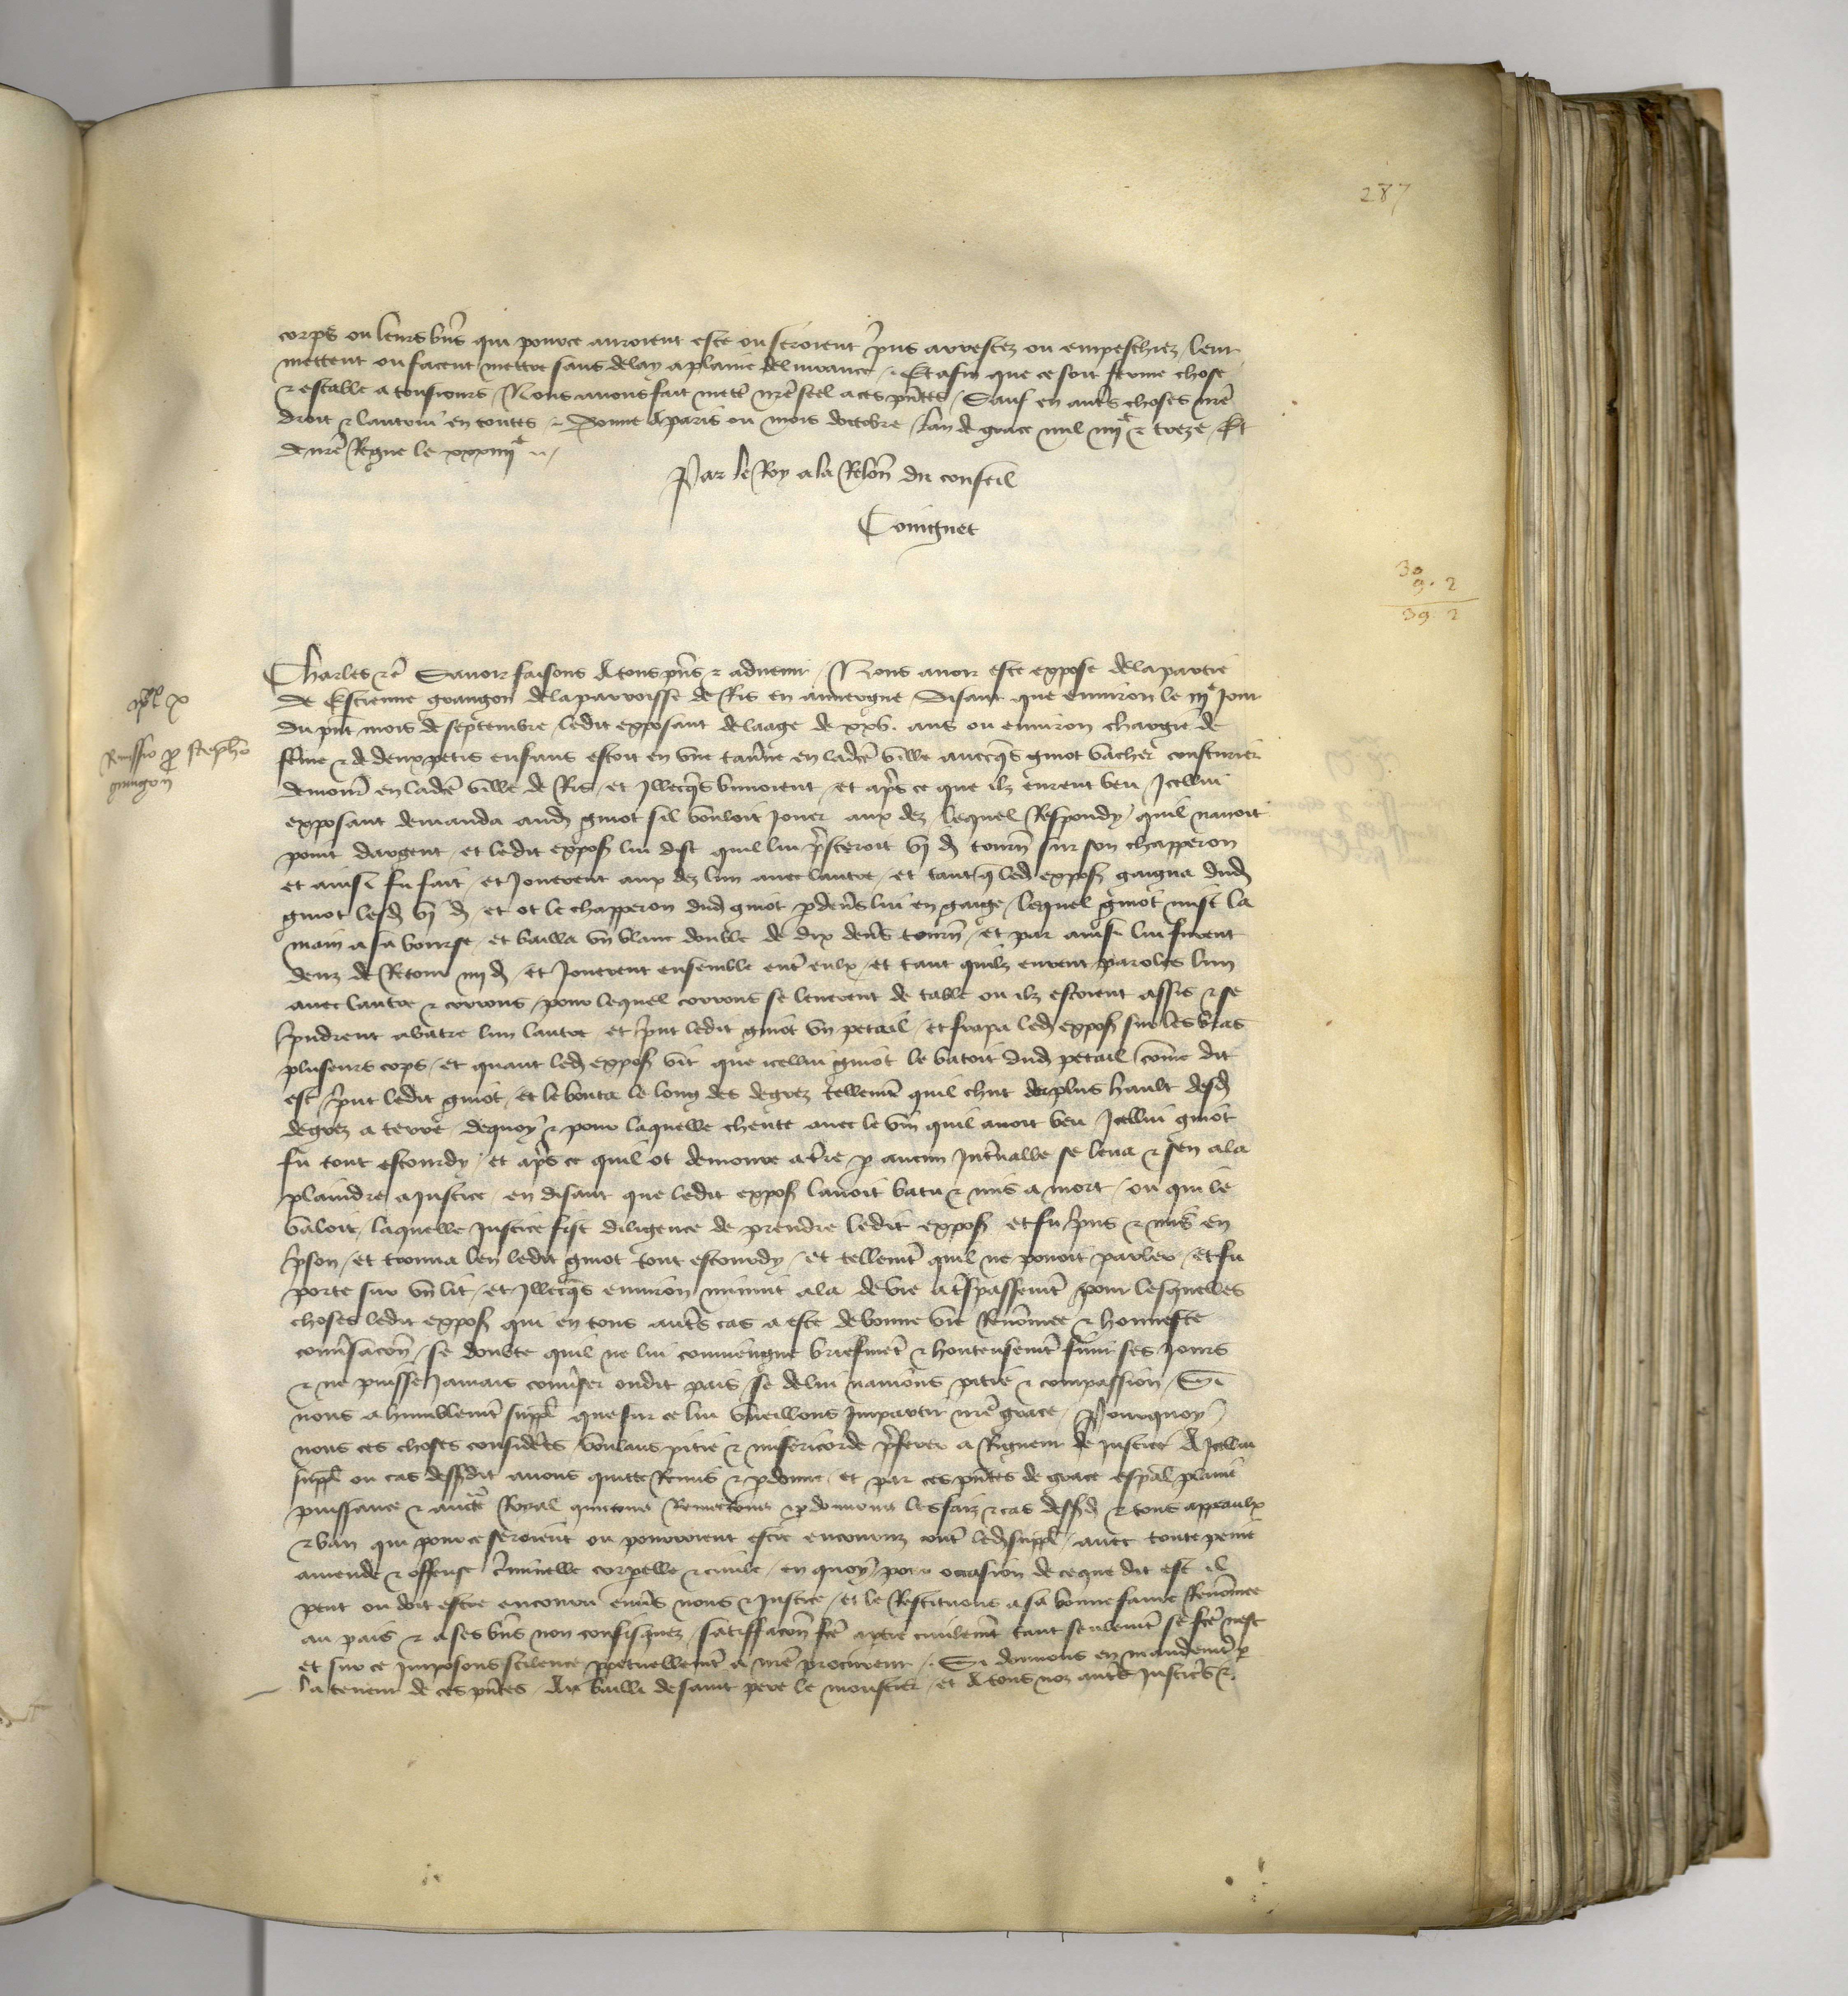 287
corps ou leurs bñs qui pource auroient este ou seroient p̃ns arrestez ou empeschiez leur
mettent ou facent mettre sans delay a plaine deliurance / Et afin que ce soit ferme chose
& estable a tousiours Nous auons fait mett̃ nr̃e seel a ces pñtes / Sauf en aut̃s choses nr̃e
droit & lautrui en toutes / Donne A paris ou mois doctobre / Lan de grace mil iiijc & treze / Et
de nr̃e Regne le xxxiiije /
Par le Roy a la Relõn du conseil
Coingnet
30
9. 2
39. 2
Remissio p stephõ
grangon
Charles &c̃ Sauoir faisons A tous pñs & aduenir / Nous auoir este expose de la partie
de Estienne grangon de la parroisse de Ris en auuergne / Disant que enuiron le iije Jour
du pñt mois de septembre / ledit exposant de laage de xxv. ans ou enuiron chargie de
fẽme & de deux petis enfans estoit en vne tau̾ne en lad̾ce ville auecq̃s guiot vachier cousturier
demour̃ en lad̾ce ville de Ris / et Illecq̃s buuoient / et ap̃s ce que ilz eurent beu / Icellui
exposant demanda aud̾ guiot sil vouloit Jouer aux dez / lequel Respondy / quil nauoit
point dargent / et ledit expos̾ lui dist quil lui p̃steroit vj d̾ tourñ sur son chapperon
et ainsi fu fait / et Jouerent aux dez lun auec lautre / et tant q̃ led̾ expos̾ gaigna dud̾
guiot lesd̾ vj d̾ / et ot le chapperon dud̾ guiot p deu̾s lui en gaige / lequel guiot mist la
main a sa bourse / et bailla vñ blanc double de dix deñs tourñ / et par ainsi lui furent
deuz de Retour iiij d̾ / et Jouerent ensemble ent̃ eulx / et tant quilz eurent paroles lun
auec lautre & corrous / pour lequel corrous se leuerent de table ou ilz estoient assis & se
p̃ndrent a batre lun lautre / et p̃nt ledit guiot vñ petail / et frapa led̾ expos̾ sur les bras
plusieurs cops / et quant led̾ expos̾ vit que icellui guiot le batoit dud̾ petail cõme dit
est / p̃nt ledit guiot / et le bouta le long des degrez tellemẽt quil chut du plus hault desd̾
degrez a terre / dequoy & pour laquelle cheute auec le vin quil auoit beu / Icellui guiot
fu tout estourdy / et ap̃s ce quil ot demoure a t̃re p aucun Int̾ualle se leua & sen ala
plaindre a Justice / en disant que ledit expos̾ lauoit batu & mis a mort / ou qui le
valoit / laquelle Justice fist diligence de prendre ledit expos̾ et fu p̃ns & mis en
p̃son / et trouua len ledit guiot tout estourdy / et tellemẽt quil ne pouoit parler / et fu
porte sur vñ lit / et Illecq̃s enuiron minuit ala de vie a t̃spassemẽt / pour lesquelles
choses ledit expos̾ qui en tous aut̃s cas a este de bonne vie Renõmee & honneste
conu̾sacõn / se doubte quil ne lui conuiengne briefmẽt & honteusemẽt finir ses Jours
& ne puisse Jamais conu̾ser oudit pais se de lui nauions pitie & compassion / Si
nous a humblemẽt suppl̃ que sur ce lui vueillons Impartir nr̃e grace / Pourquoy
nous ces choses consider̃s / voulans pitie & misericorde p̃ferer a Rigueur de Justice A Icellui
suppl̃ ou cas dessusdit auons quitte Remis & p donne / et par ces pñtes de grace esp̃al plaine
puissance & auct̃e Royal quittons Remettons & p donnons les faiz & cas dessusd̾ & tous appeaulx
& ban qui pource seroient ou pourroient estre encouruz cont̃ led̾ suppl̃ / auec toute peine
amende & offense c̃minelle corpelle & ciuile / en quoy pour occasion de ce que dit est il
peut ou doit estre encouru enu̾s nous & Justice / et le Restituons a sa bonne fame Renõmee
au pais & a ses bñs non confisquez / satisffacõn fc̃e a partie ciuilemẽt tant seulemẽt se fc̃e nest
et sur ce Imposons scilence ppetuellemẽt a nr̃e procureur / Si donnons en mandemẽt p
la teneur de ces pñtes / Au bailli de saint pere le moustier / et A tous noz aut̃s Justic̃s &c̃